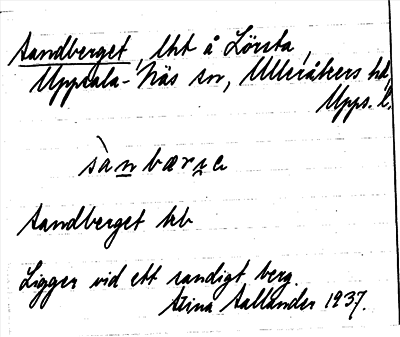 Sandberget, lht å Lörsta,
Uppsala-Näs sn, Ulleråkers hd,
Upps. l.
sànbærɛ
Sandberget kb
Ligger vid ett sandigt berg.
Stina Sallander 1937.